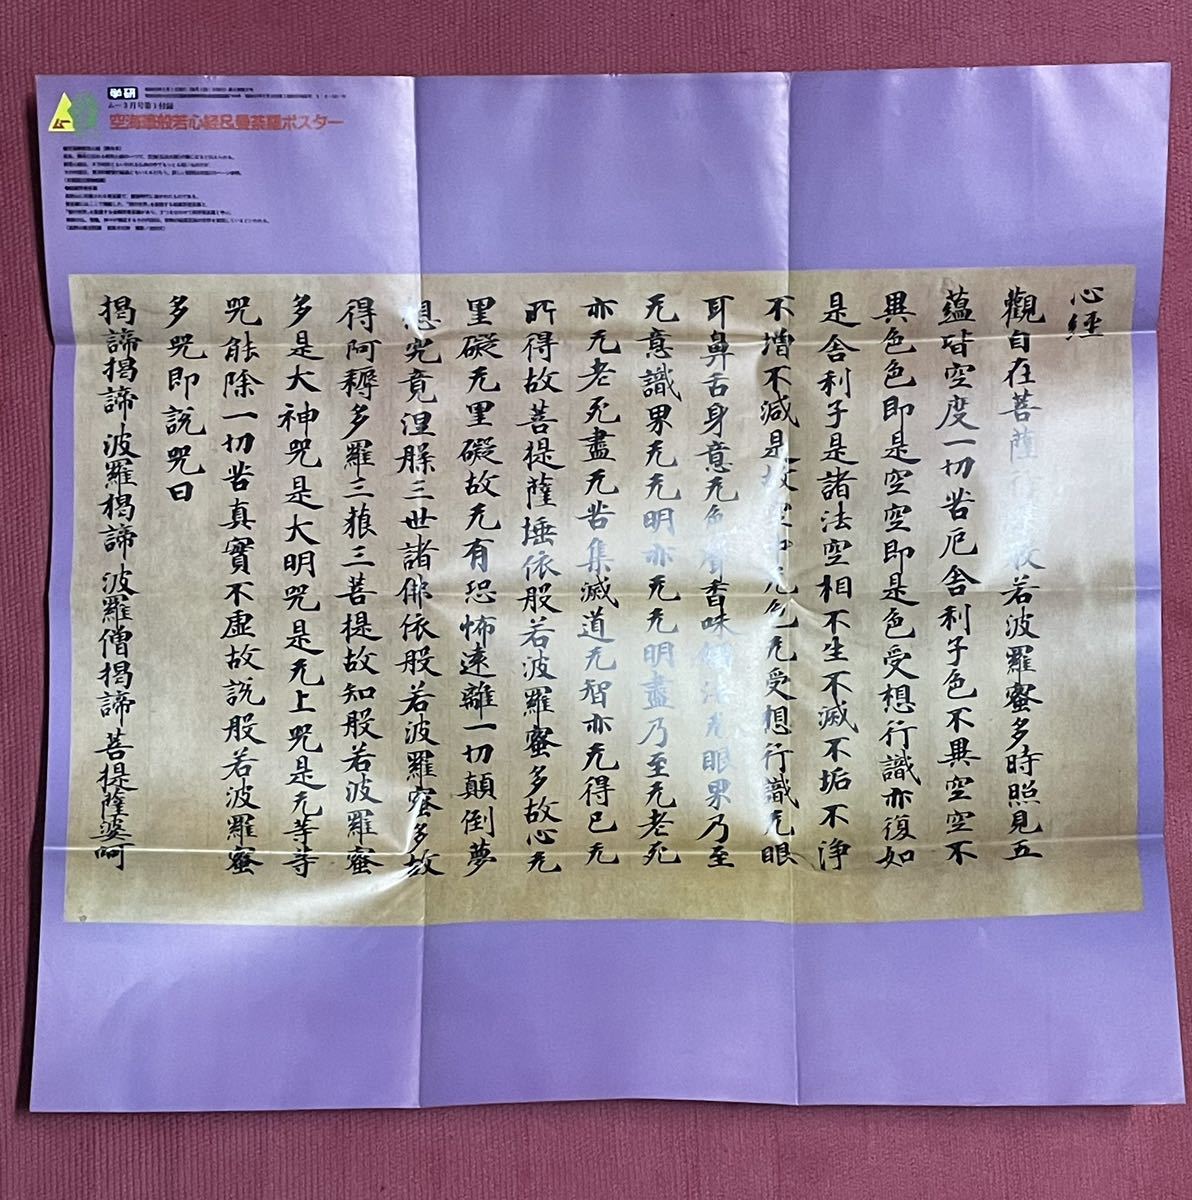 学研
ムー3月号第1付録
空海筆般若心経&曼荼羅ポスター
ムー
心經
觀自在菩薩行深般若波羅蜜多時照見五
蘊皆空度一切苦厄舍利子色不異空空不
異色色即是空空即是色受想行識亦復如
是舍利子是諸法空相不生不滅不垢不淨
不增不減是故空中无色无受想行識无眼
耳鼻舌身意无色聲香味觸法无眼界乃至
无意識界无无明亦无无明盡乃至无老死
亦无老死盡无苦集滅道无智亦无得已无
所得故菩提薩埵依般若波羅蜜多故心无
罣礙无罣礙故无有恐怖遠離一切顛倒夢
想究竟涅槃三世諸佛依般若波羅蜜多故
得阿耨多羅三藐三菩提故知般若波羅蜜
多是大神咒是大明咒是无上咒是无等等
咒能除一切苦真實不虛故說般若波羅蜜
多咒即說咒曰
揭諦揭諦 波羅揭諦 波羅僧揭諦 菩提薩婆呵